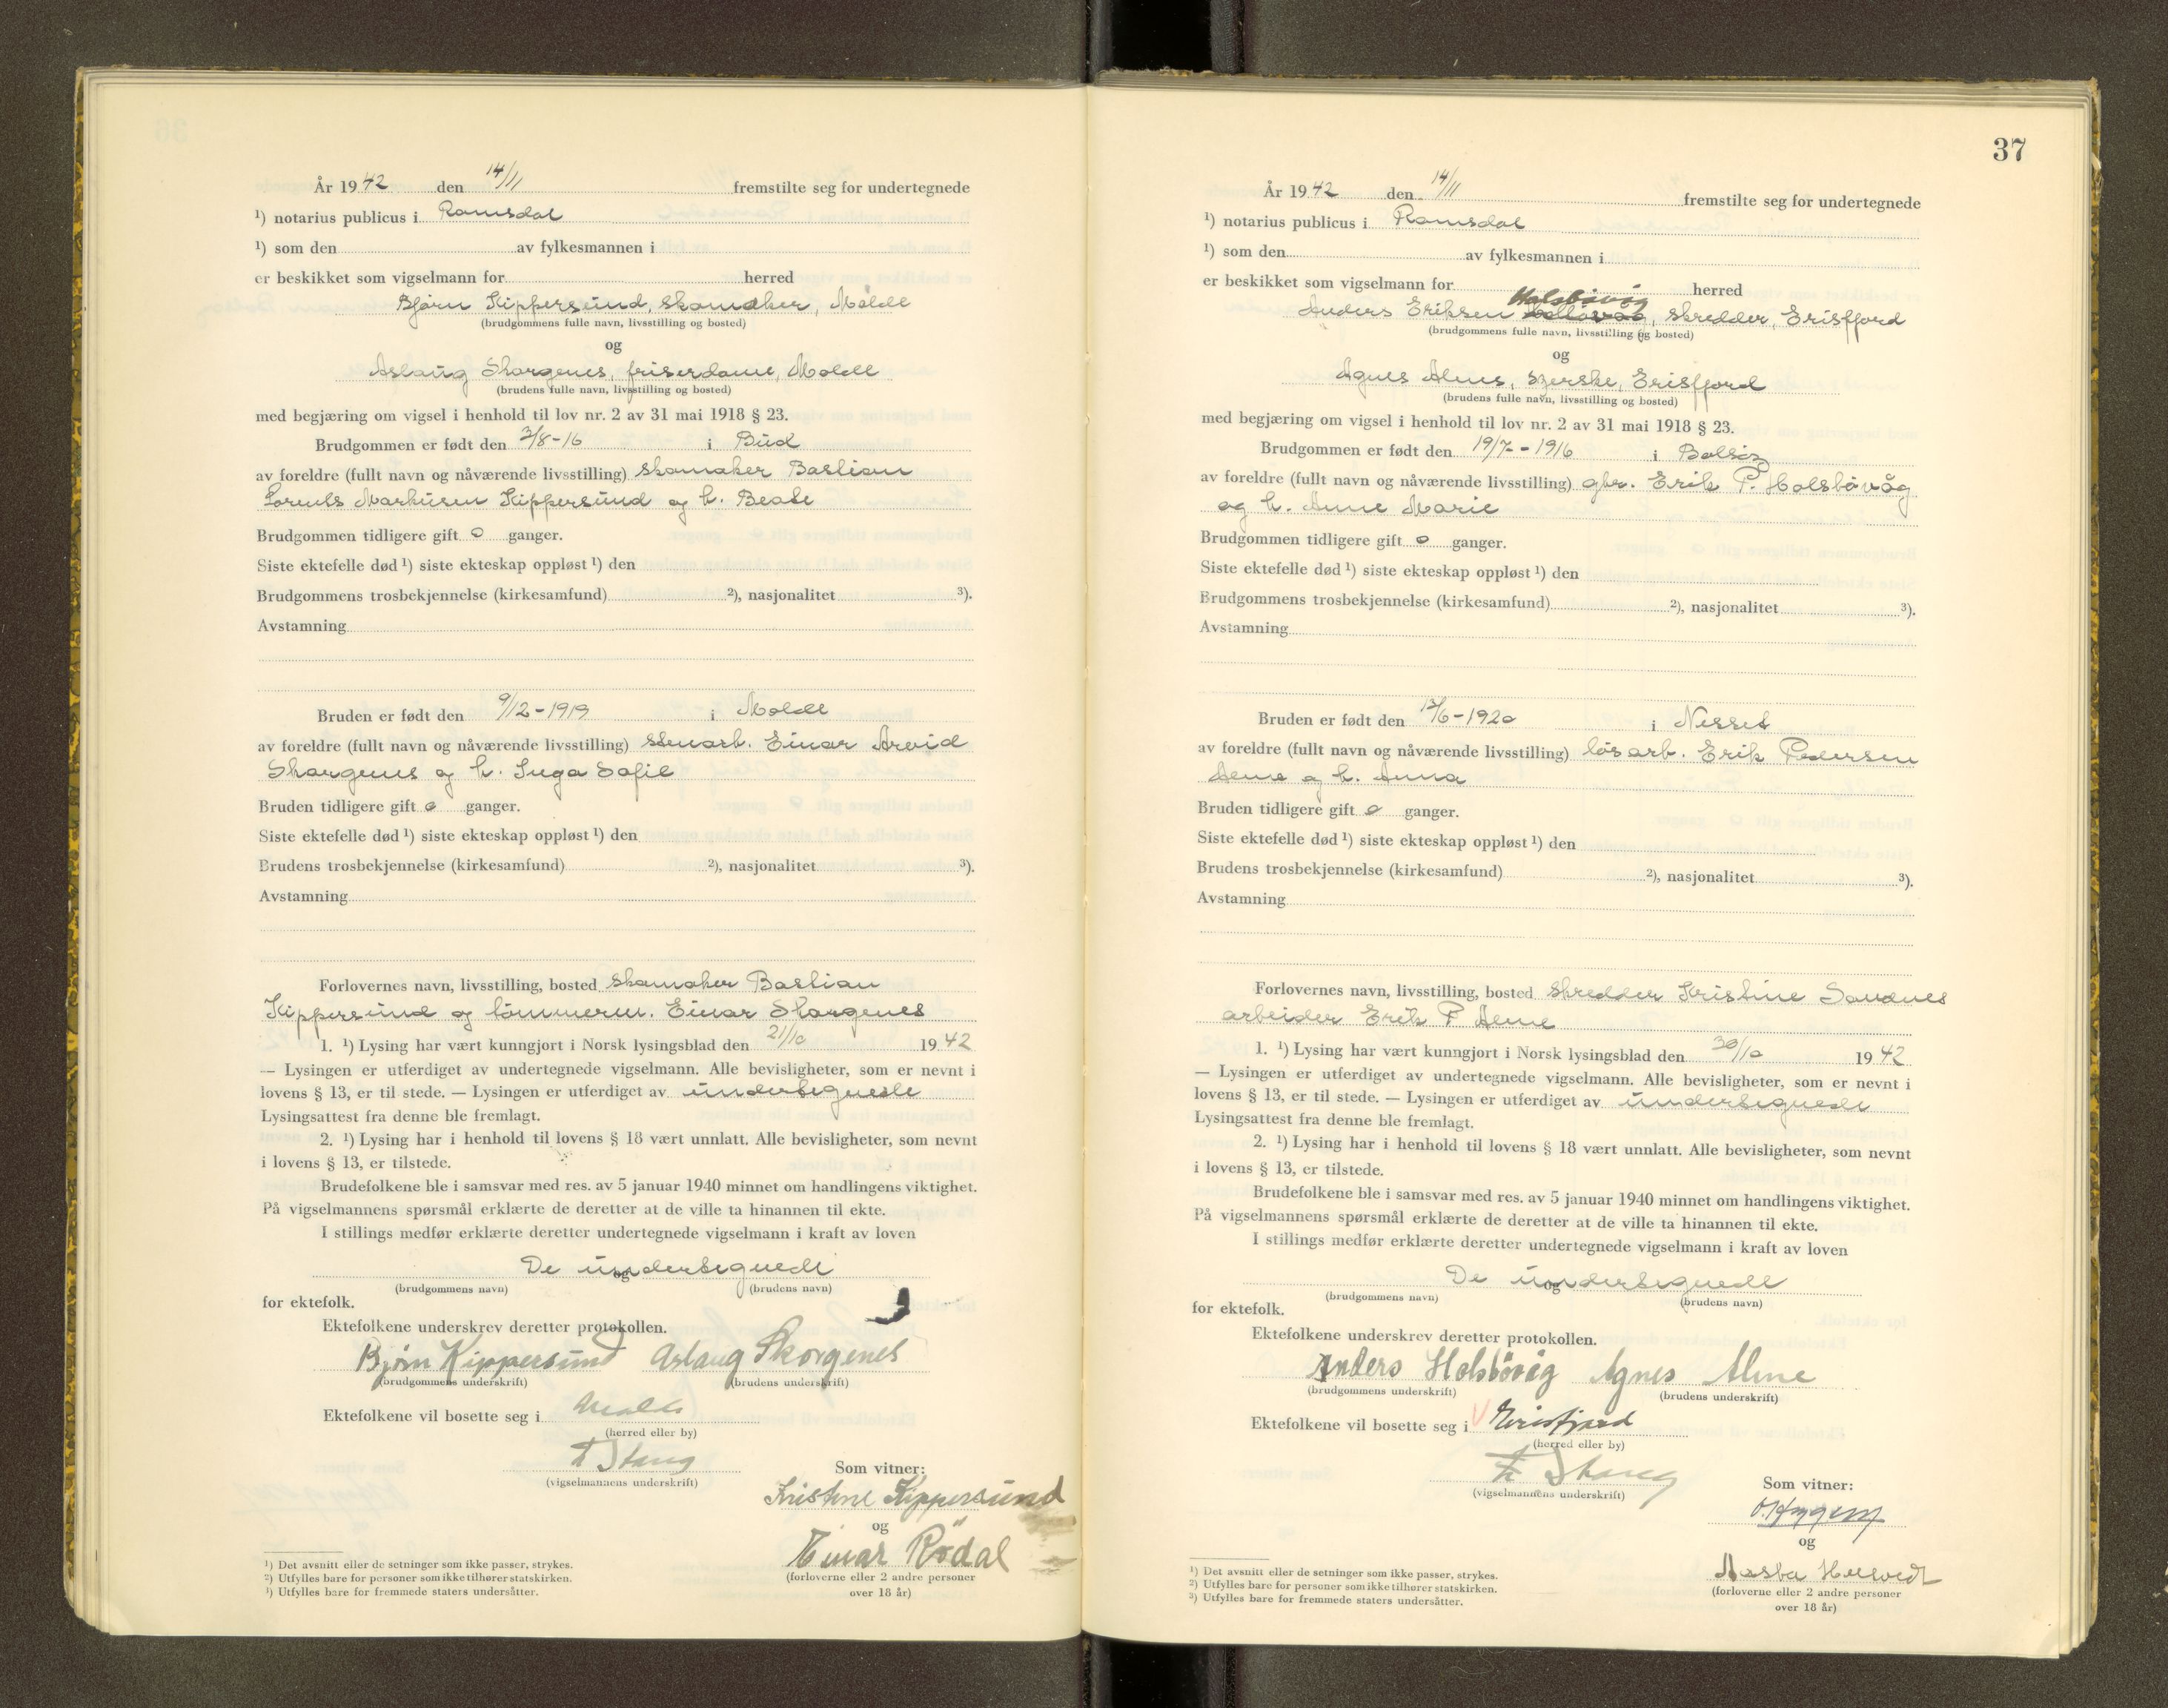 År 1942 den 14/11 fremstilte seg for undertegnede
¹) notarius publicus i Romsdal
¹) som den av fylkesmannen i
er beskikket som vigselmann for herred
Bjørn Kippersund, skomaker, Molde
(brudgommens fulle navn, livsstilling og bosted)
og
Aslaug Skorgenes, friserdame, Molde
(brudens fulle navn, livsstilling og bosted)
med begjæring om vigsel i henhold til lov nr. 2 av 31 mai 1918 § 23.
Brudgommen er født den 3/8-16 i Bud
av foreldre (fullt navn og nåværende livsstilling) skomaker Bastian
Lorents Markusen Kippersund og h. Beate
Brudgommen tidligere gift 0 ganger.
Siste ektefelle død ¹) siste ekteskap oppløst ¹) den
Brudgommens trosbekjennelse (kirkesamfund) ²), nasjonalitet ³).
Avstamning
Bruden er født den 9/12-1919 i Molde
av foreldre (fullt navn og nåværende livsstilling) Einar Arvid
Skorgenes og h. Inga Sofie
Bruden tidligere gift 0 ganger.
Siste ektefelle død ¹) siste ekteskap oppløst ¹) den
Brudens trosbekjennelse (kirkesamfund) ²), nasjonalitet ³).
Avstamning
Forlovernes navn, livsstilling, bosted skomaker Bastian
Kippersund og tömmerm. Einar Skorgenes
1. ¹) Lysing har vært kunngjort i Norsk lysingsblad den 21/10 1942
— Lysingen er utferdiget av undertegnede vigselmann. Alle bevisligheter, som er nevnt i
lovens § 13, er til stede. — Lysingen er utferdiget av undertegnede
Lysingsattest fra denne ble fremlagt.
2. ¹) Lysing har i henhold til lovens § 18 vært unnlatt. Alle bevisligheter, som nevnt
i lovens § 13, er tilstede.
Brudefolkene ble i samsvar med res. av 5 januar 1940 minnet om handlingens viktighet.
På vigselmannens spørsmål erklærte de deretter at de ville ta hinannen til ekte.
I stillings medfør erklærte deretter undertegnede vigselmann i kraft av loven
De undertegnede
og
(brudgommens navn) (brudens navn)
for ektefolk.
Ektefolkene underskrev deretter protokollen.
Bjørn Kippersund Aslaug Skorgenes
(brudgommens underskrift) (brudens underskrift)
Ektefolkene vil bosette seg i Molde
(herred eller by)
Stang
(vigselmannens underskrift)
Som vitner:
Kristine Kippersund
og
Einar Rödal
(forloverne eller 2 andre personer
over 18 år)
¹) Det avsnitt eller de setninger som ikke passer, strykes.
²) Utfylles bare for personer som ikke tilhører statskirken.
³) Utfylles bare for fremmede staters undersåtter.
37
År 1942 den 14/11 fremstilte seg for undertegnede
¹) notarius publicus i Romsdal
¹) som den av fylkesmannen i
er beskikket som vigselmann for herred
Holsbövåg
Anders Eriksen , skredder, Erisfjord
(brudgommens fulle navn, livsstilling og bosted)
og
Agnes Alme, syerske, Erisfjord
(brudens fulle navn, livsstilling og bosted)
med begjæring om vigsel i henhold til lov nr. 2 av 31 mai 1918 § 23.
Brudgommen er født den 19/7-1916 i Bolsöy
av foreldre (fullt navn og nåværende livsstilling) gbr. Erik P. Holsbövåg
og h. Anne Marie
Brudgommen tidligere gift 0 ganger.
Siste ektefelle død ¹) siste ekteskap oppløst ¹) den
Brudgommens trosbekjennelse (kirkesamfund) ²), nasjonalitet ³).
Avstamning
Bruden er født den 13/6-1920 i Nesset
av foreldre (fullt navn og nåværende livsstilling) lösarb. Erik Pedersen
Alme og h. Anna
Bruden tidligere gift 0 ganger.
Siste ektefelle død ¹) siste ekteskap oppløst ¹) den
Brudens trosbekjennelse (kirkesamfund) ²), nasjonalitet ³).
Avstamning
Forlovernes navn, livsstilling, bosted skredder Kristine Sandnes
arbeider Erik P Alme
1. ¹) Lysing har vært kunngjort i Norsk lysingsblad den 30/10 1942
— Lysingen er utferdiget av undertegnede vigselmann. Alle bevisligheter, som er nevnt i
lovens § 13, er til stede. — Lysingen er utferdiget av undertegnede
Lysingsattest fra denne ble fremlagt.
2. ¹) Lysing har i henhold til lovens § 18 vært unnlatt. Alle bevisligheter, som nevnt
i lovens § 13, er tilstede.
Brudefolkene ble i samsvar med res. av 5 januar 1940 minnet om handlingens viktighet.
På vigselmannens spørsmål erklærte de deretter at de ville ta hinannen til ekte.
I stillings medfør erklærte deretter undertegnede vigselmann i kraft av loven
De undertegnede
og
(brudgommens navn) (brudens navn)
for ektefolk.
Ektefolkene underskrev deretter protokollen.
Anders Holsbövåg Agnes Alme
(brudgommens underskrift) (brudens underskrift)
Ektefolkene vil bosette seg i Eirisfjord
(herred eller by)
Stang
(vigselmannens underskrift)
Som vitner:
og
Aasta
(forloverne eller 2 andre personer
over 18 år)
¹) Det avsnitt eller de setninger som ikke passer, strykes.
²) Utfylles bare for personer som ikke tilhører statskirken.
³) Utfylles bare for fremmede staters undersåtter.